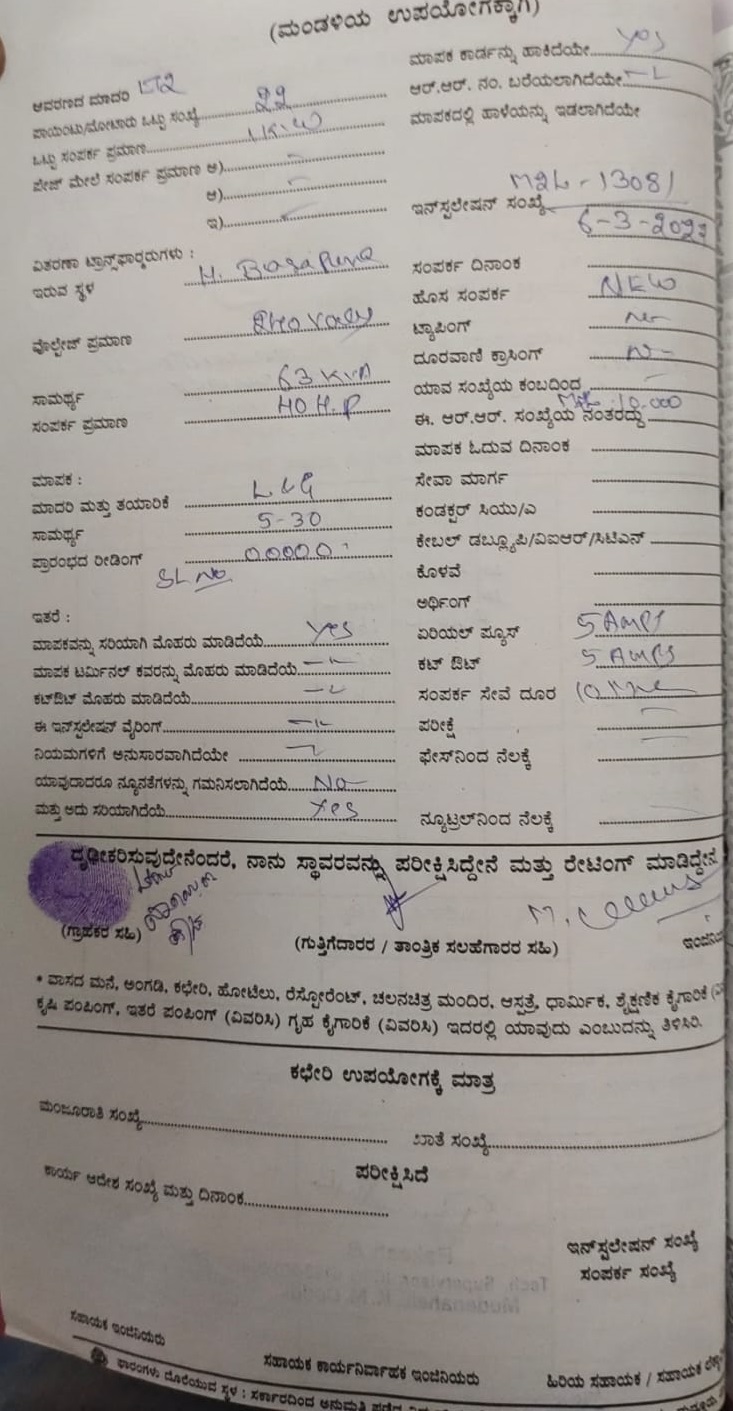 (ಮಂಡಳಿಯ ಉಪಯೋಗಕ್ಕಾಗಿ)
ಆವರಣದ ಮಾದರಿ LT2
ಪಾಯಿಂಟು/ಮೋಟಾರು ಒಟ್ಟು ಸಂಖ್ಯೆ
ಒಟ್ಟು ಸಂಪರ್ಕ ಪ್ರಮಾಣ 1KW
ಪೇಜ್ ಮೇಲೆ ಸಂಪರ್ಕ ಪ್ರಮಾಣ ಅ)
ಆ)
ಇ)
ವಿತರಣಾ ಟ್ರಾನ್ಸ್‌ಫಾರ್ಮರುಗಳು :
ಇರುವ ಸ್ಥಳ H. Basapura
ವೊಲ್ಟೇಜ್ ಪ್ರಮಾಣ
ಸಾಮರ್ಥ್ಯ 63 KVA
ಸಂಪರ್ಕ ಪ್ರಮಾಣ 40 H.P
ಮಾಪಕ :
ಮಾದರಿ ಮತ್ತು ತಯಾರಿಕೆ L&G
ಸಾಮರ್ಥ್ಯ 5-30
ಪ್ರಾರಂಭದ ರೀಡಿಂಗ್ 00000
SL No
ಇತರೆ :
ಮಾಪಕವನ್ನು ಸರಿಯಾಗಿ ಮೊಹರು ಮಾಡಿದೆಯೆ Yes
ಮಾಪಕ ಟರ್ಮಿನಲ್ ಕವರನ್ನು ಮೊಹರು ಮಾಡಿದೆಯೆ
ಕಟ್‌ಔಟ್ ಮೊಹರು ಮಾಡಿದೆಯೆ
ಈ ಇನ್‌ಸ್ಟಲೇಷನ್ ವೈರಿಂಗ್
ನಿಯಮಗಳಿಗೆ ಅನುಸಾರವಾಗಿದೆಯೇ
ಯಾವುದಾದರೂ ನ್ಯೂನತೆಗಳನ್ನು ಗಮನಿಸಲಾಗಿದೆಯೆ No
ಮತ್ತು ಅದು ಸರಿಯಾಗಿದೆಯೆ Yes
ಮಾಪಕ ಕಾರ್ಡನ್ನು ಹಾಕಿದೆಯೇ Yes
ಆರ್.ಆರ್. ನಂ. ಬರೆಯಲಾಗಿದೆಯೇ
ಮಾಪಕದಲ್ಲಿ ಹಾಳೆಯನ್ನು ಇಡಲಾಗಿದೆಯೇ
ಇನ್‌ಸ್ಟಲೇಷನ್ ಸಂಖ್ಯೆ M2L-13081
ಸಂಪರ್ಕ ದಿನಾಂಕ
ಹೊಸ ಸಂಪರ್ಕ NEW
ಟ್ಯಾಪಿಂಗ್
ದೂರವಾಣಿ ಕ್ರಾಸಿಂಗ್
ಯಾವ ಸಂಖ್ಯೆಯ ಕಂಬದಿಂದ
ಈ. ಆರ್.ಆರ್. ಸಂಖ್ಯೆಯ ನಂತರದ್ದು
ಮಾಪಕ ಓದುವ ದಿನಾಂಕ
ಸೇವಾ ಮಾರ್ಗ
ಕಂಡಕ್ಟರ್ ಸಿಯು/ಎ
ಕೇಬಲ್ ಡಬ್ಲ್ಯೂಪಿ/ವಿಐಆರ್/ಸಿಟಿಎಸ್
ಕೊಳವೆ
ಅರ್ಥಿಂಗ್
ಏರಿಯಲ್ ಪ್ಯೂಸ್ 5 AMPS
ಕಟ್ ಔಟ್ 5 AMPS
ಸಂಪರ್ಕ ಸೇವೆ ದೂರ
ಪರೀಕ್ಷೆ
ಫೇಸ್‌ನಿಂದ ನೆಲಕ್ಕೆ
ನ್ಯೂಟ್ರಲ್‌ನಿಂದ ನೆಲಕ್ಕೆ
ದೃಢೀಕರಿಸುವುದೇನೆಂದರೆ, ನಾನು ಸ್ಥಾವರವನ್ನು ಪರೀಕ್ಷಿಸಿದ್ದೇನೆ ಮತ್ತು ರೇಟಿಂಗ್ ಮಾಡಿದ್ದೇನೆ
(ಗ್ರಾಹಕರ ಸಹಿ)
(ಗುತ್ತಿಗೆದಾರರ / ತಾಂತ್ರಿಕ ಸಲಹೆಗಾರರ ಸಹಿ)
* ವಾಸದ ಮನೆ, ಅಂಗಡಿ, ಕಛೇರಿ, ಹೋಟೆಲು, ರೆಸ್ಟೋರೆಂಟ್, ಚಲನಚಿತ್ರ ಮಂದಿರ, ಆಸ್ಪತ್ರೆ, ಧಾರ್ಮಿಕ, ಶೈಕ್ಷಣಿಕ ಕೈಗಾರಿಕೆ
ಕೃಷಿ ಪಂಪಿಂಗ್, ಇತರೆ ಪಂಪಿಂಗ್ (ವಿವರಿಸಿ) ಗೃಹ ಕೈಗಾರಿಕೆ (ವಿವರಿಸಿ) ಇದರಲ್ಲಿ ಯಾವುದು ಎಂಬುದನ್ನು ತಿಳಿಸಿರಿ.
ಕಛೇರಿ ಉಪಯೋಗಕ್ಕೆ ಮಾತ್ರ
ಮಂಜೂರಾತಿ ಸಂಖ್ಯೆ
ಖಾತೆ ಸಂಖ್ಯೆ
ಪರೀಕ್ಷಿಸಿದೆ
ಕಾರ್ಯ ಆದೇಶ ಸಂಖ್ಯೆ ಮತ್ತು ದಿನಾಂಕ
ಇನ್‌ಸ್ಟಲೇಷನ್ ಸಂಖ್ಯೆ
ಸಂಪರ್ಕ ಸಂಖ್ಯೆ
ಸಹಾಯಕ ಇಂಜಿನಿಯರು
ಸಹಾಯಕ ಕಾರ್ಯನಿರ್ವಾಹಕ ಇಂಜಿನಿಯರು
ಹಿರಿಯ ಸಹಾಯಕ / ಸಹಾಯಕ
ಫಾರಂಗಳು ದೊರೆಯುವ ಸ್ಥಳ : ಸರ್ಕಾರದಿಂದ ಅನುಮತಿ ಪಡೆದ